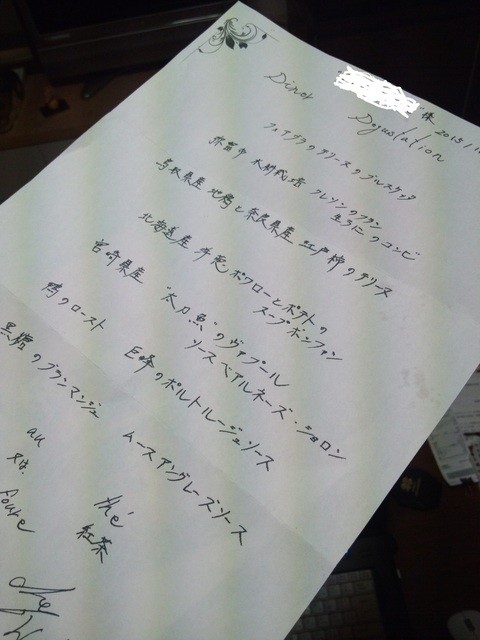 様 2015/1
Diner Dgustation
フォアグラのテリーヌのブルスケッタ
水耕栽培 クレソンのフラン
生うにのコンビ
鳥取県産 地鶏と奈良県産 江戸柿のテリーヌ
北海道産 ポワローとポテトの
スープボンファン
宮崎県産 "太刀魚"のヴァプール
ソースベアルネーズ・ショロン
鴨のロースト 巨峰のポルトルージュソース
黒糖のブランマンジェ
ムースアングレーズソース
au thé
又は 紅茶